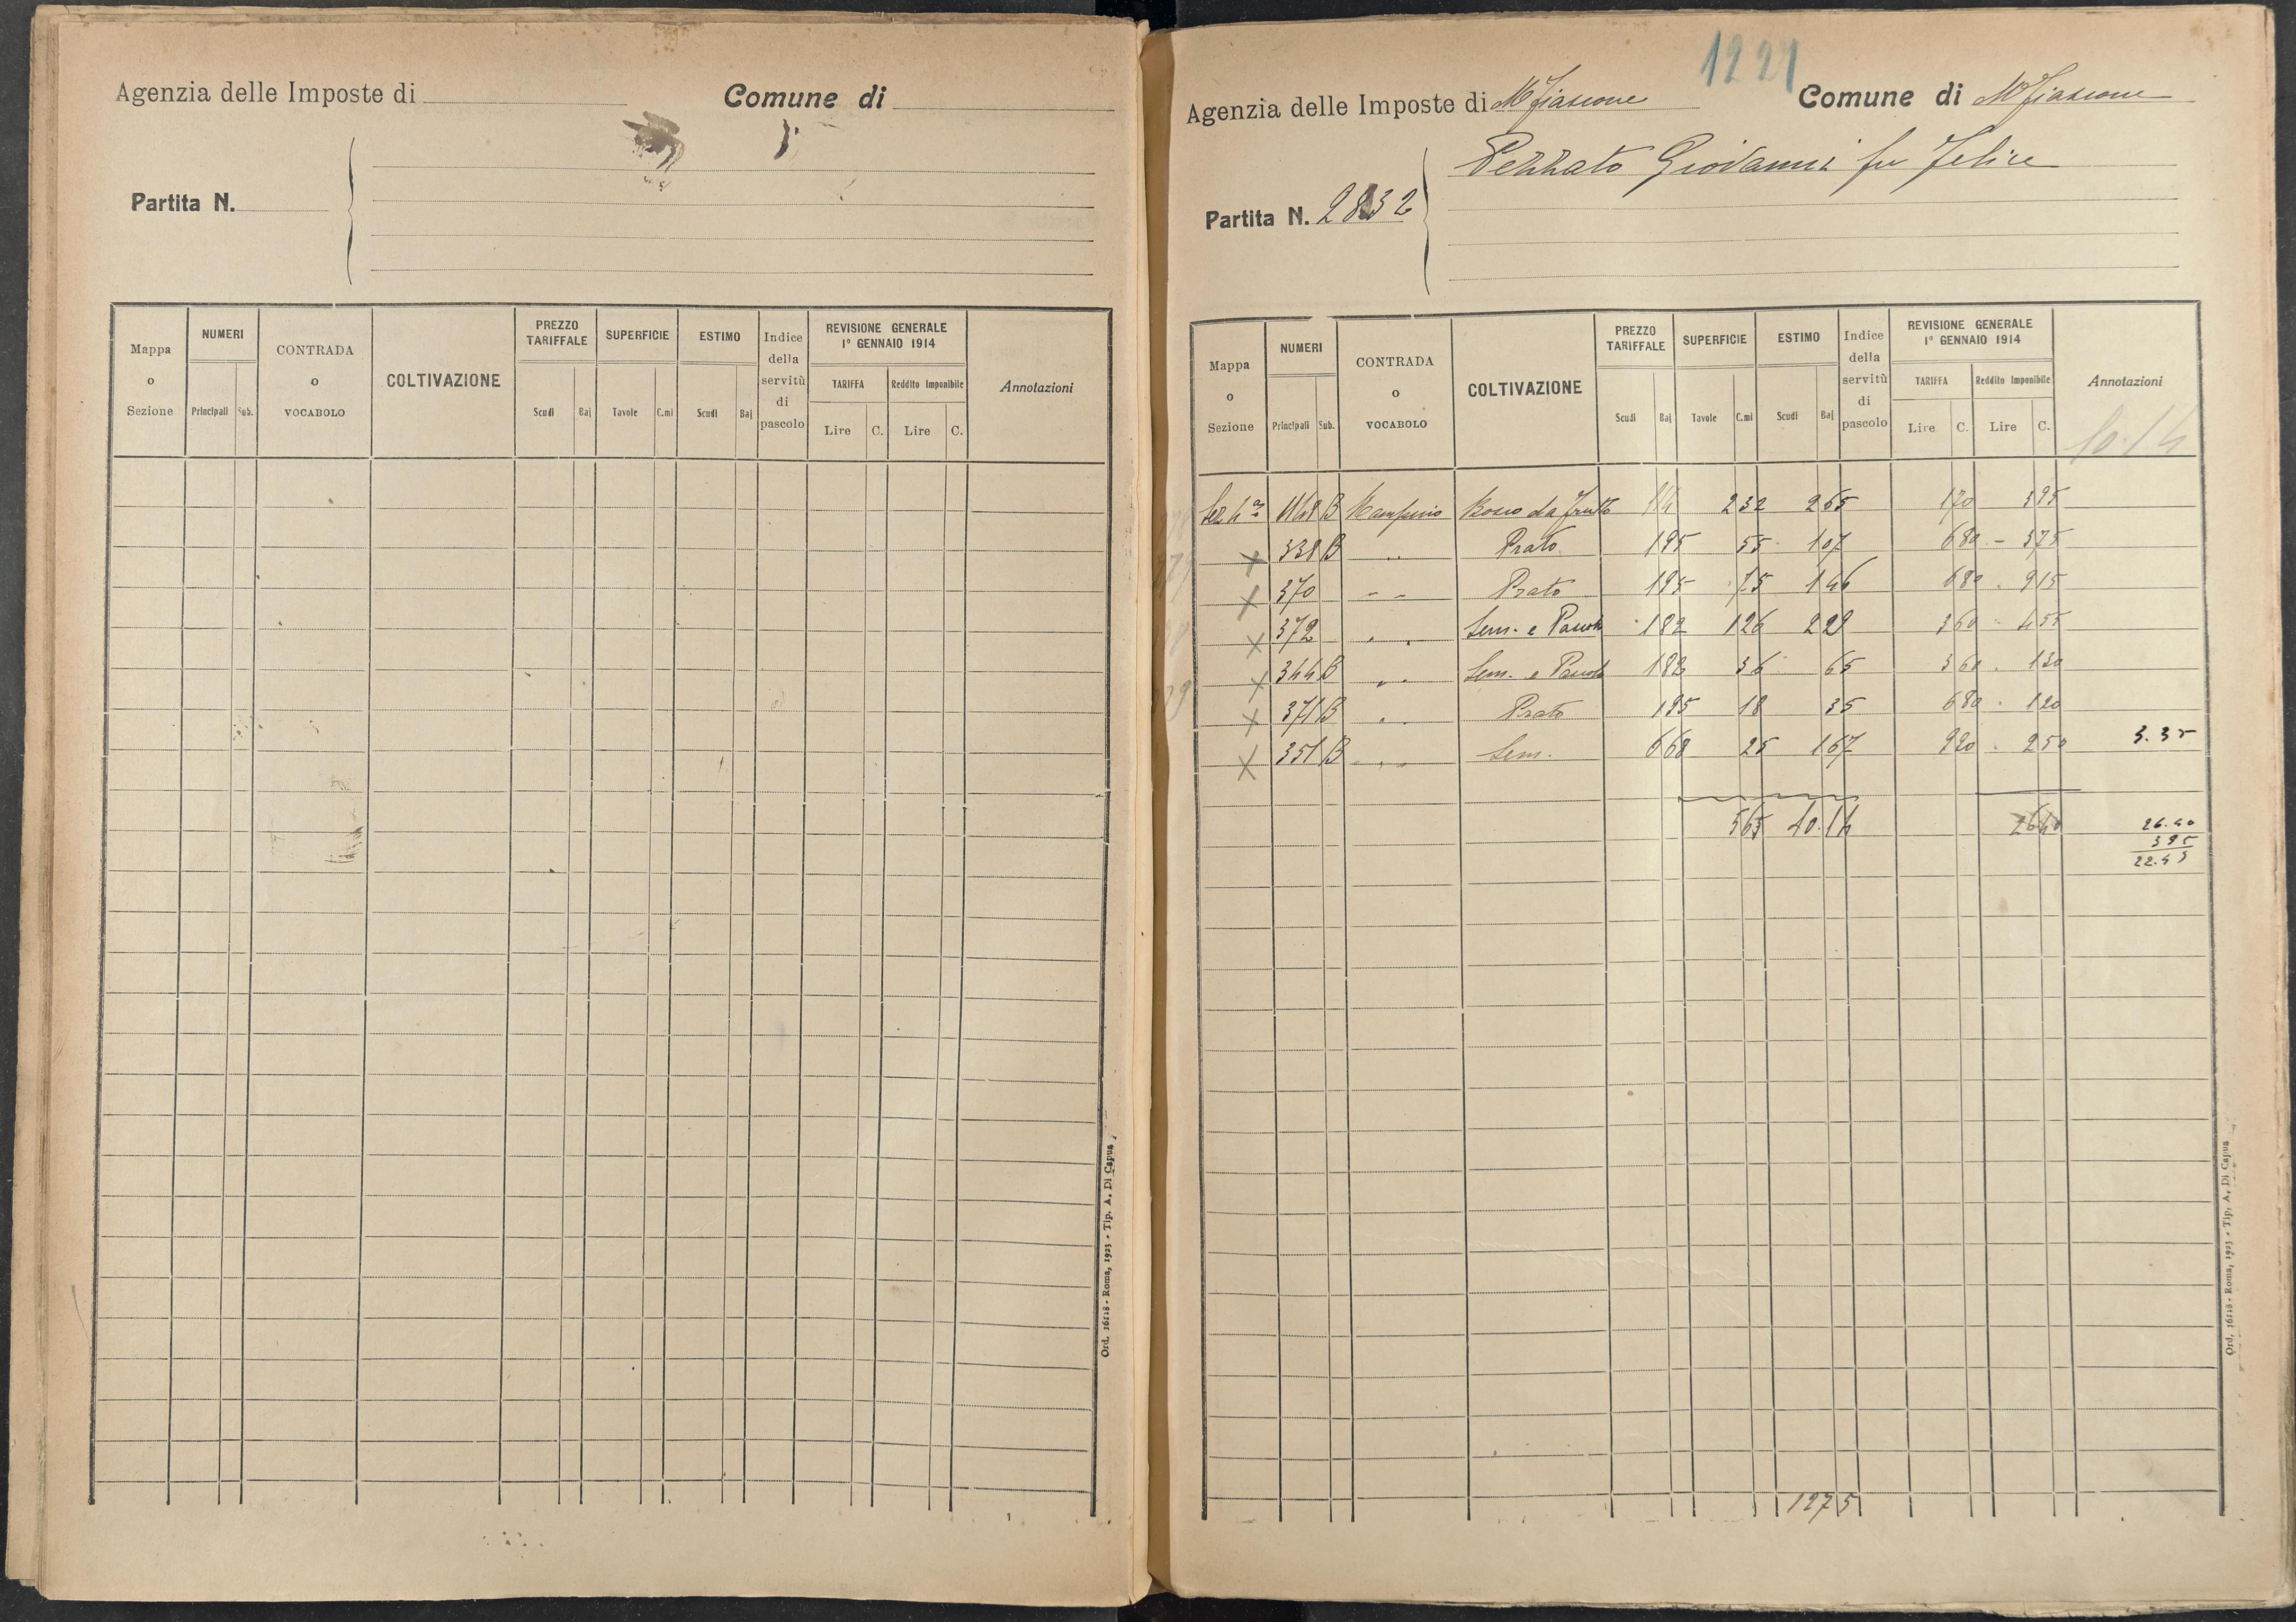 Agenzia delle Imposte di
Comune di
Partita N.
Mappa o Sezione
NUMERI
Principali Sub.
CONTRADA o VOCABOLO
COLTIVAZIONE
PREZZO TARIFFALE
Scudi Baj
SUPERFICIE
Tavole C.mi
ESTIMO
Scudi Baj
Indice della servitù di pascolo
REVISIONE GENERALE
1° GENNAIO 1914
TARIFFA Reddito Imponibile
Lire C. Lire C.
Annotazioni
Ord. 16118 - Roma, 1923 - Tip. A. Di Capua
1221
Agenzia delle Imposte di Mfiascone
Comune di Mfiascone
Pezzato Giovanni fu Felice
Partita N. 2832
Mappa o Sezione
NUMERI
Principali Sub.
CONTRADA o VOCABOLO
COLTIVAZIONE
PREZZO TARIFFALE
Scudi Baj
SUPERFICIE
Tavole C.mi
ESTIMO
Scudi Baj
Indice della servitù di pascolo
REVISIONE GENERALE
1° GENNAIO 1914
TARIFFA Reddito Imponibile
Lire C. Lire C.
Annotazioni
10.14
Sez 4ª 1148 B Bosco da frutto 114 232 265 170 395
x 338 B " Prato 195 55 107 680 - 375
x 370 " " Prato 195 75 146 680 . 915
x 372 " " Sem. e Pascolo 182 126 229 360 455
x 344 B " " Sem. e Pascolo 182 36 65 360 . 130
x 371 B " " Prato 195 18 35 680 . 120
x 351 B " " Sem. 668 25 167 920 . 250 3.35
565 10.14 2640 26.40
395
22.45
1275
Ord. 16118 - Roma, 1923 - Tip. A. Di Capua